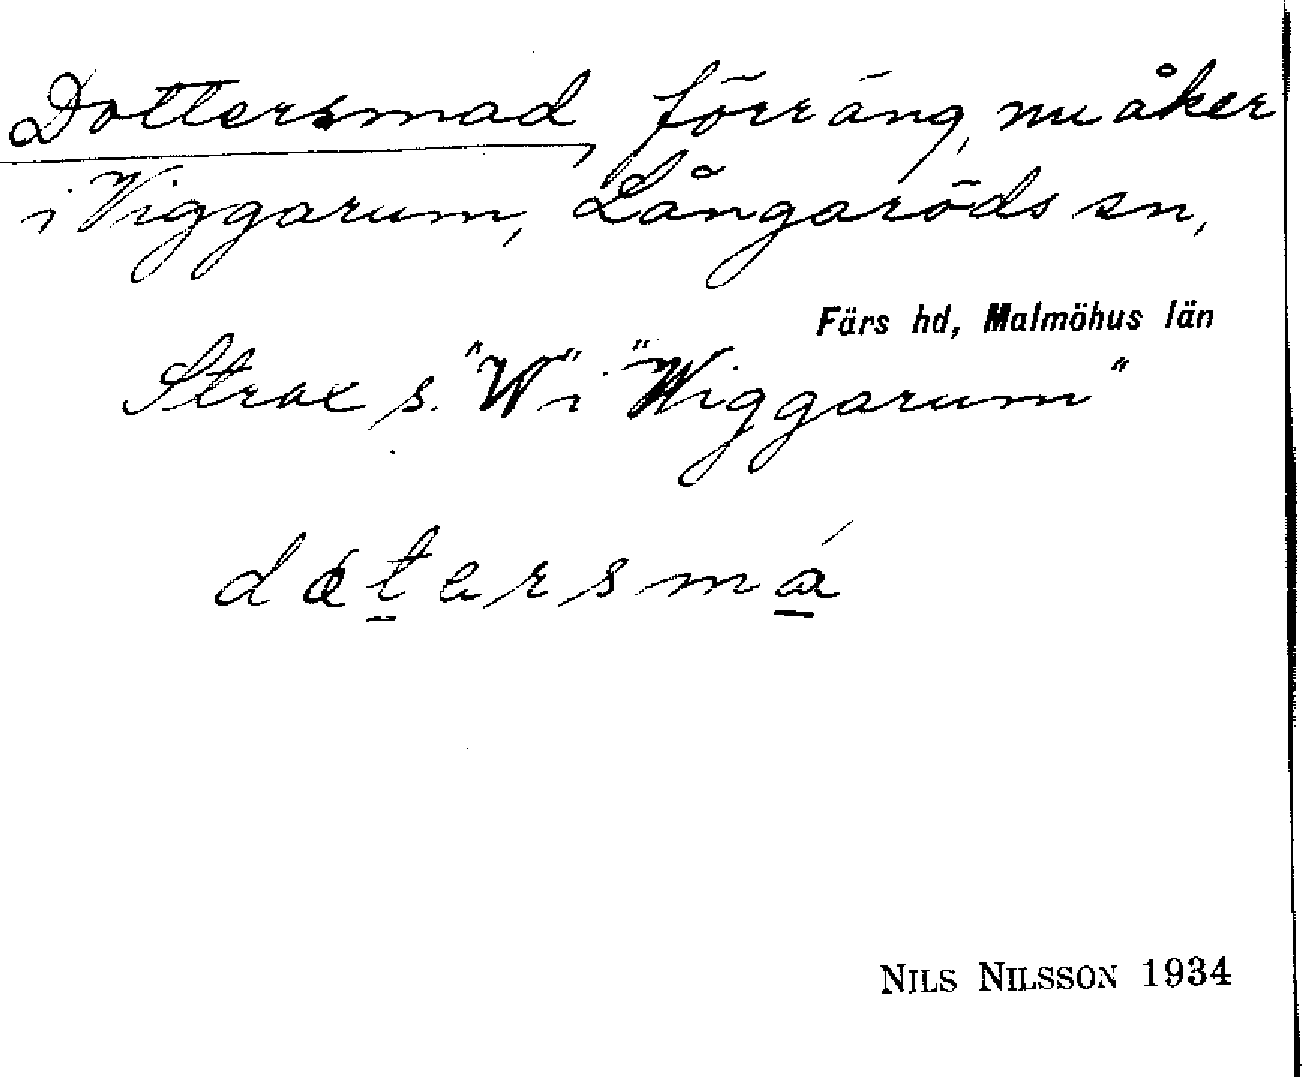 Dottersmad, förr äng, nu åker
i Viggarum, Långaröds sn,
Färs hd, Malmöhus län
Strax s. "W" i "Wiggarum"
NILS NILSSON 1934